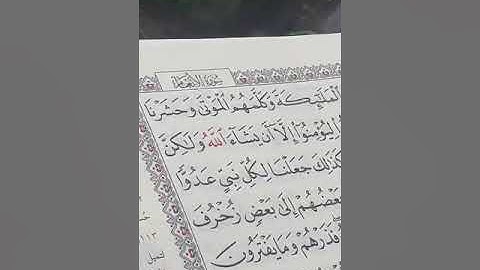 سُورَةُ الأَنْعَامِ
ٱلْمَلَٰٓئِكَةَ وَكَلَّمَهُمُ ٱلْمَوْتَىٰ وَحَشَرْنَا
لِيُؤْمِنُوٓا۟ إِلَّآ أَن يَشَآءَ ٱللَّهُ وَلَٰكِنَّ
كَذَٰلِكَ جَعَلْنَا لِكُلِّ نَبِىٍّ عَدُوًّا
بَعْضُهُمْ إِلَىٰ بَعْضٍ زُخْرُفَ
فَذَرْهُمْ وَمَا يَفْتَرُونَ